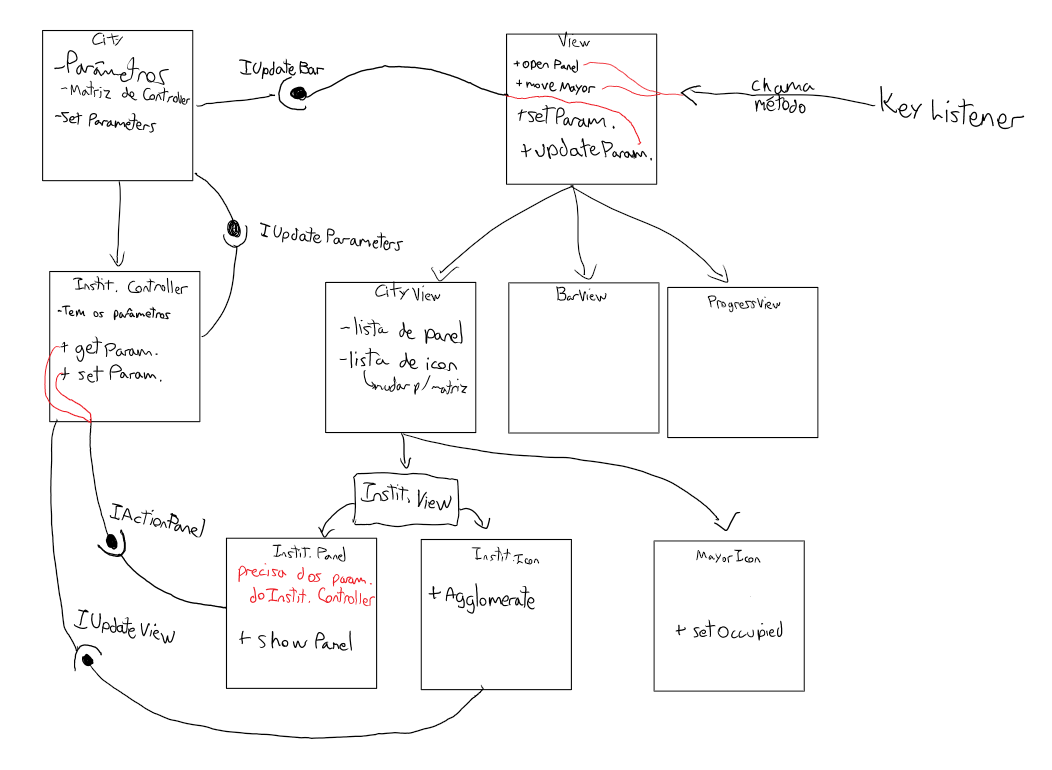 City
-Parâmetros
-Matriz de Controller
-Set Parameters
IUpdate Bar
View
+open Panel
+move Mayor
+set Param.
+update Param.
chama
método
Key Listener
IUpdate Parameters
Instit. Controller
-Tem os parâmetros
+ get Param.
+ set Param.
City View
-lista de panel
-lista de icon
mudar p/ matriz
BarView
ProgressView
Instit. View
IActionPanel
IUpdate View
Instit. Panel
precisa dos param.
do Instit. Controller
+ show Panel
Instit. Icon
+ Agglomerate
Mayor Icon
+ set Occupied